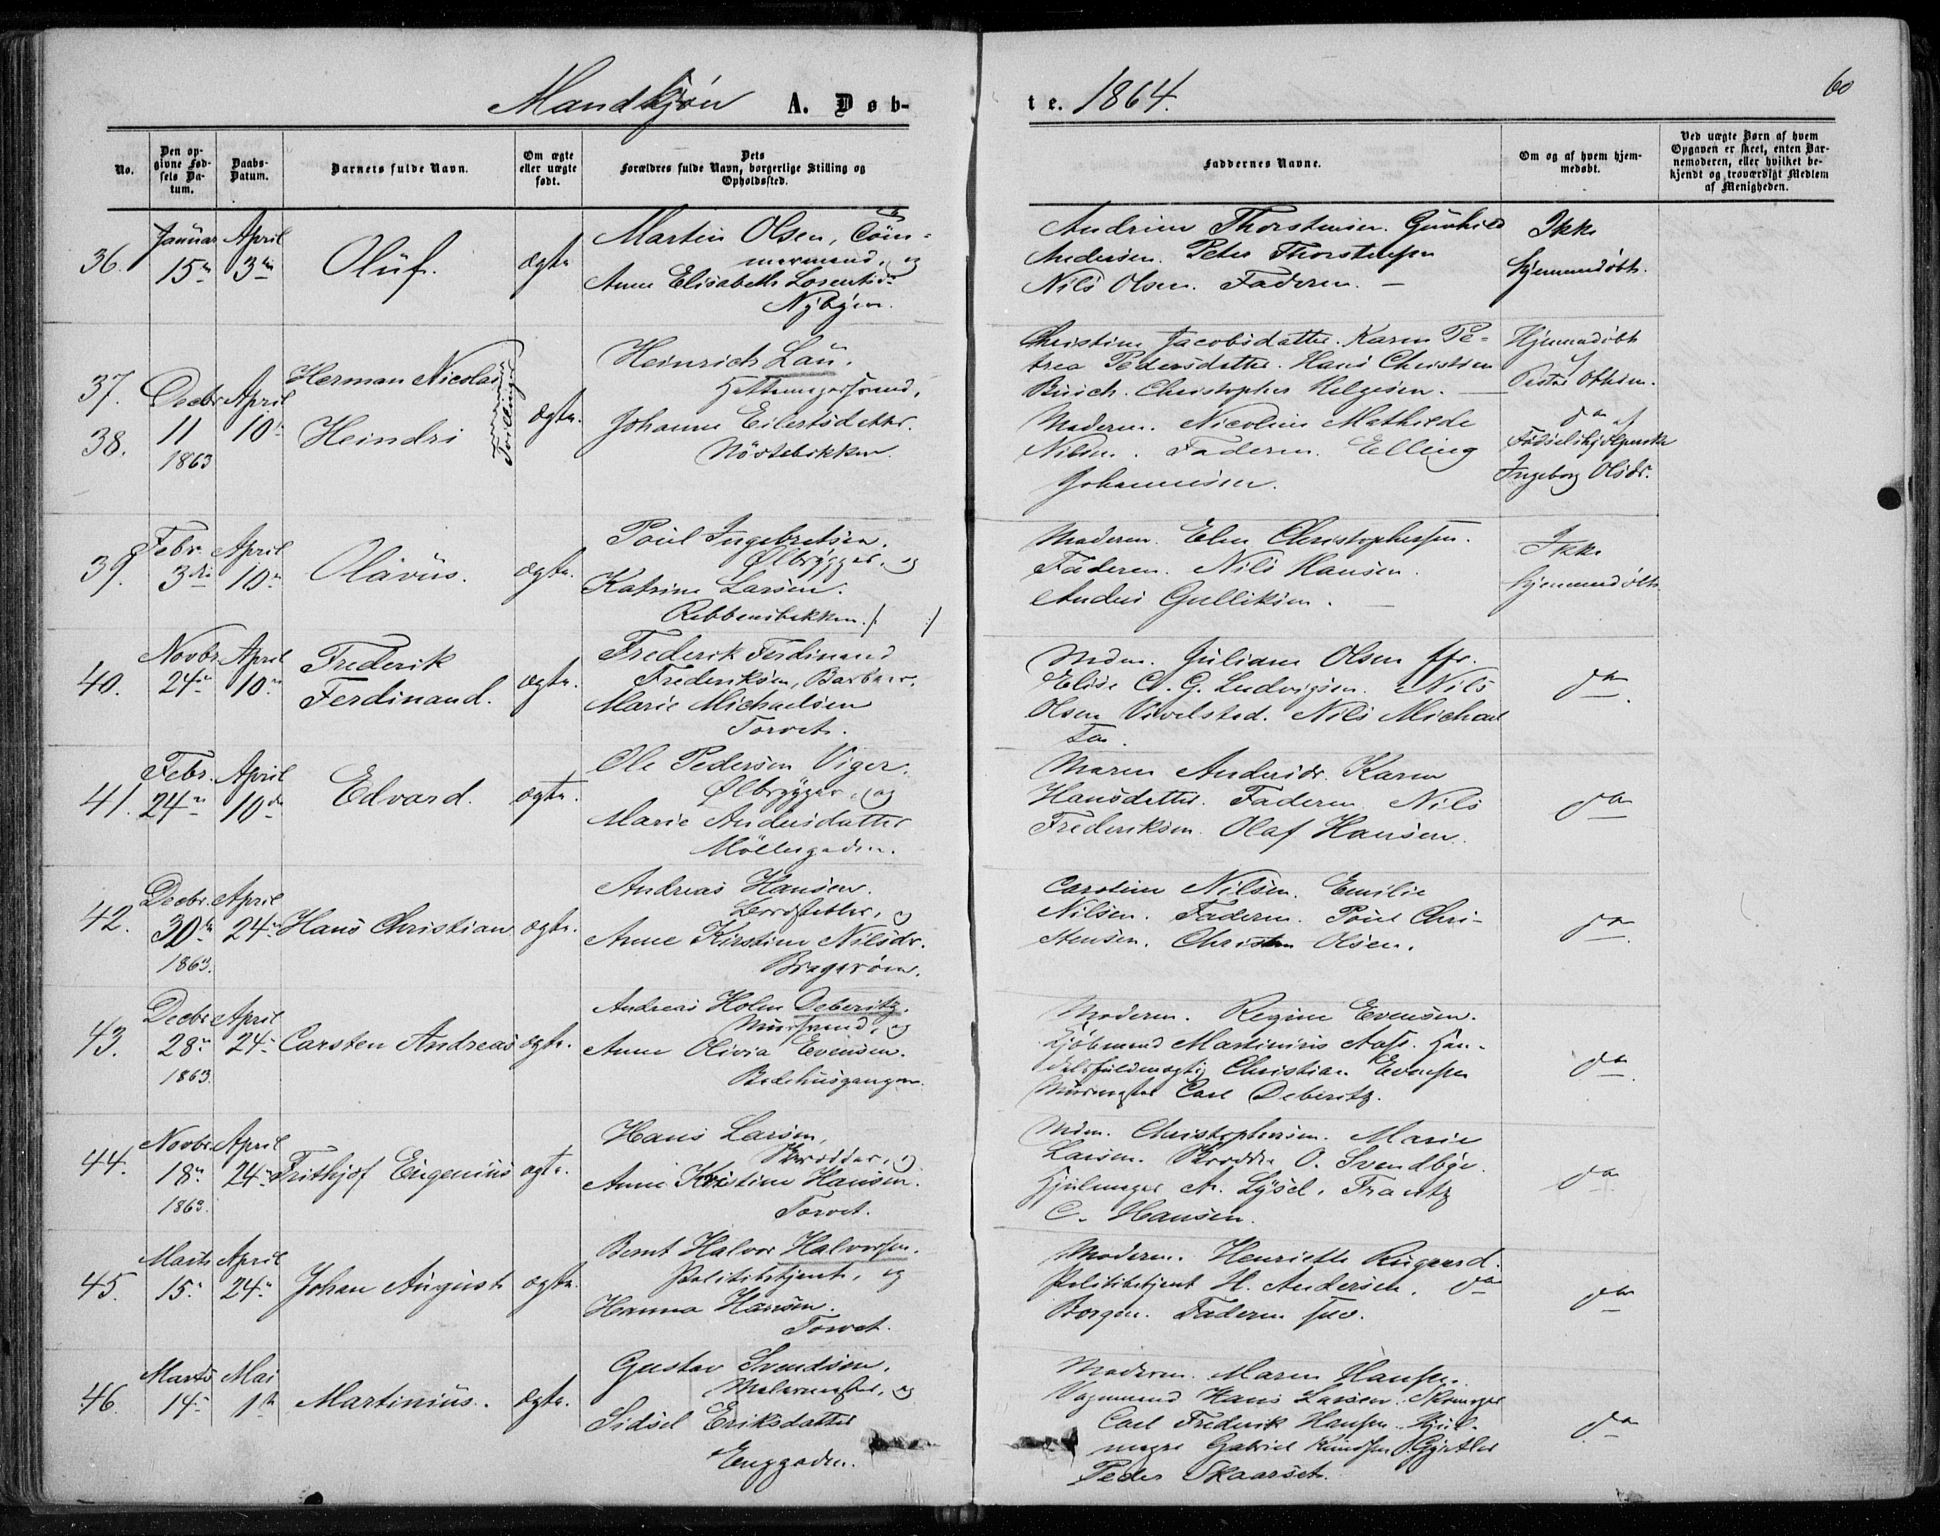 Mandkjøn A. Døb-
te. 1864.
60
No.
Den opgivne Fødsels Datum.
Daabs-Datum.
Barnets fulde Navn.
Om ægte eller uægte født.
Dets Forældres fulde Navn, borgerlige Stilling og Opholdssted.
Faddernes Navne.
Om og af hvem hjemmedøbt.
Ved uægte Børn af hvem Opgaven er skeet, enten Barnemoderen, eller hvilket bekjendt og troværdigt Medlem af Menigheden.
36.
Januar 15de
April 3die
Oluf.
ægte
Martin Olsen, Töm-
mermand, og
Anne Elisabeth Lorentsd.
Nybyen.
Andrine Thorstensen. Gunhild
Andersen. Peter Thorstensen
Nils Olsen. Faderen. —
Ikke
hjemmedöbt.
37.
38.
Decbr 11 1863
April 10
Herman Nicolai
Heindri
Tvillinger
ægte.
Heinrich Lau.
Hattemagersvend,
Johanne Eilertsdatter.
Nöstebikken
Christine Jacobsdatter. Karen Pe-
trea Pedersdatter. Hans Christian
Busch. Christopher Helgesen. —
Moderen. Nicoline Mathilde
Nilsen. Faderen. Elling
Johannesen.
Hjemmedöbt
af
Pastor
do af
Födselshjelperske
Ingeborg Olsdr.
39.
Febr. 3die
April 10de
Olavus.
ægte.
Poul Ingebretsen,
Ølbrygger, og
Katrine Larsen.
Ribbensbakken
Moderen. Elen Christophersen.
Faderen. Nils Hansen.
Anders Gulliksen. —
Ikke
hjemmedöbt
40.
Novbr 24de
April 10de
Frederik
Ferdinand.
ægte.
Frederik Ferdinand
Frederiksen, Barbeer.
Marie Michaelsen
Torvet.
Mdm. Juliane Olsen
Elise C. G. Ludvigsen. Nils
Olsen Vivelstad. Nils Michael
do
41.
Febr. 24de
April 10de
Edvard.
ægte.
Ole Pedersen Viger.
Ølbrygger, og
Marie Andersdatter
Möllergaden.
Maren Andersdr. Karen
Hansdatter. Faderen. Nils
Frederiksen. Olaf Hansen.
do
42.
Decbr. 30de 1863.
April 24de
Hans Christian
ægte.
Andreas Hansen.
og
Anne Kirstine Nilsdr.
Bragerøen.
Caroline Nilsen. Emilie
Nilsen. Faderen. Poul Chri-
stensen. Christen Olsen.
do
43.
Decbr 28de 1863.
April 24de
Carsten Andreas
ægte.
Andreas Holm Deberitz.
Muursvend, og
Anne Olivia Evensen.
Bedehusgangen.
Moderen. Regine Evensen.
Kjöbmand Martinius Aass. Han-
delsfuldmægtig Christian Evensen
Muurmester Carl Deberitz.
do
44.
Novbr 18de 1863.
April 24de
Frithjof Eugenius
ægte.
Hans Larsen,
Skrædder, og
Anne Kristine Hansen.
Torvet.
Mdm. Christophersen. Marie
Larsen. Skrædder O. Svendbye.
Hjulmager A. Lysel. Frantz
C. Hansen.
do
45.
Marts 15de
April 24de
Johan August
ægte.
Bernt Halvor Halvorsen.
Politibetjent, og
Hanna Hansen.
Torvet.
Moderen. Henriette Rugaard.
Politibetjent H. Andersen. do
Borgen. Faderen
do
46.
Marts 14de
Mai 1ste
Martinius.
ægte.
Gustav Svendsen,
Malermester, og
Sidsel Eriksdatter
Enggaden.
Moderen. Maren Hansen.
Vognmand Hans Larsen. Skomager
Carl Frederik Hansen. Hjul-
mager Gabriel Knudsen. Gjørtler
Peder Skaarset.
do